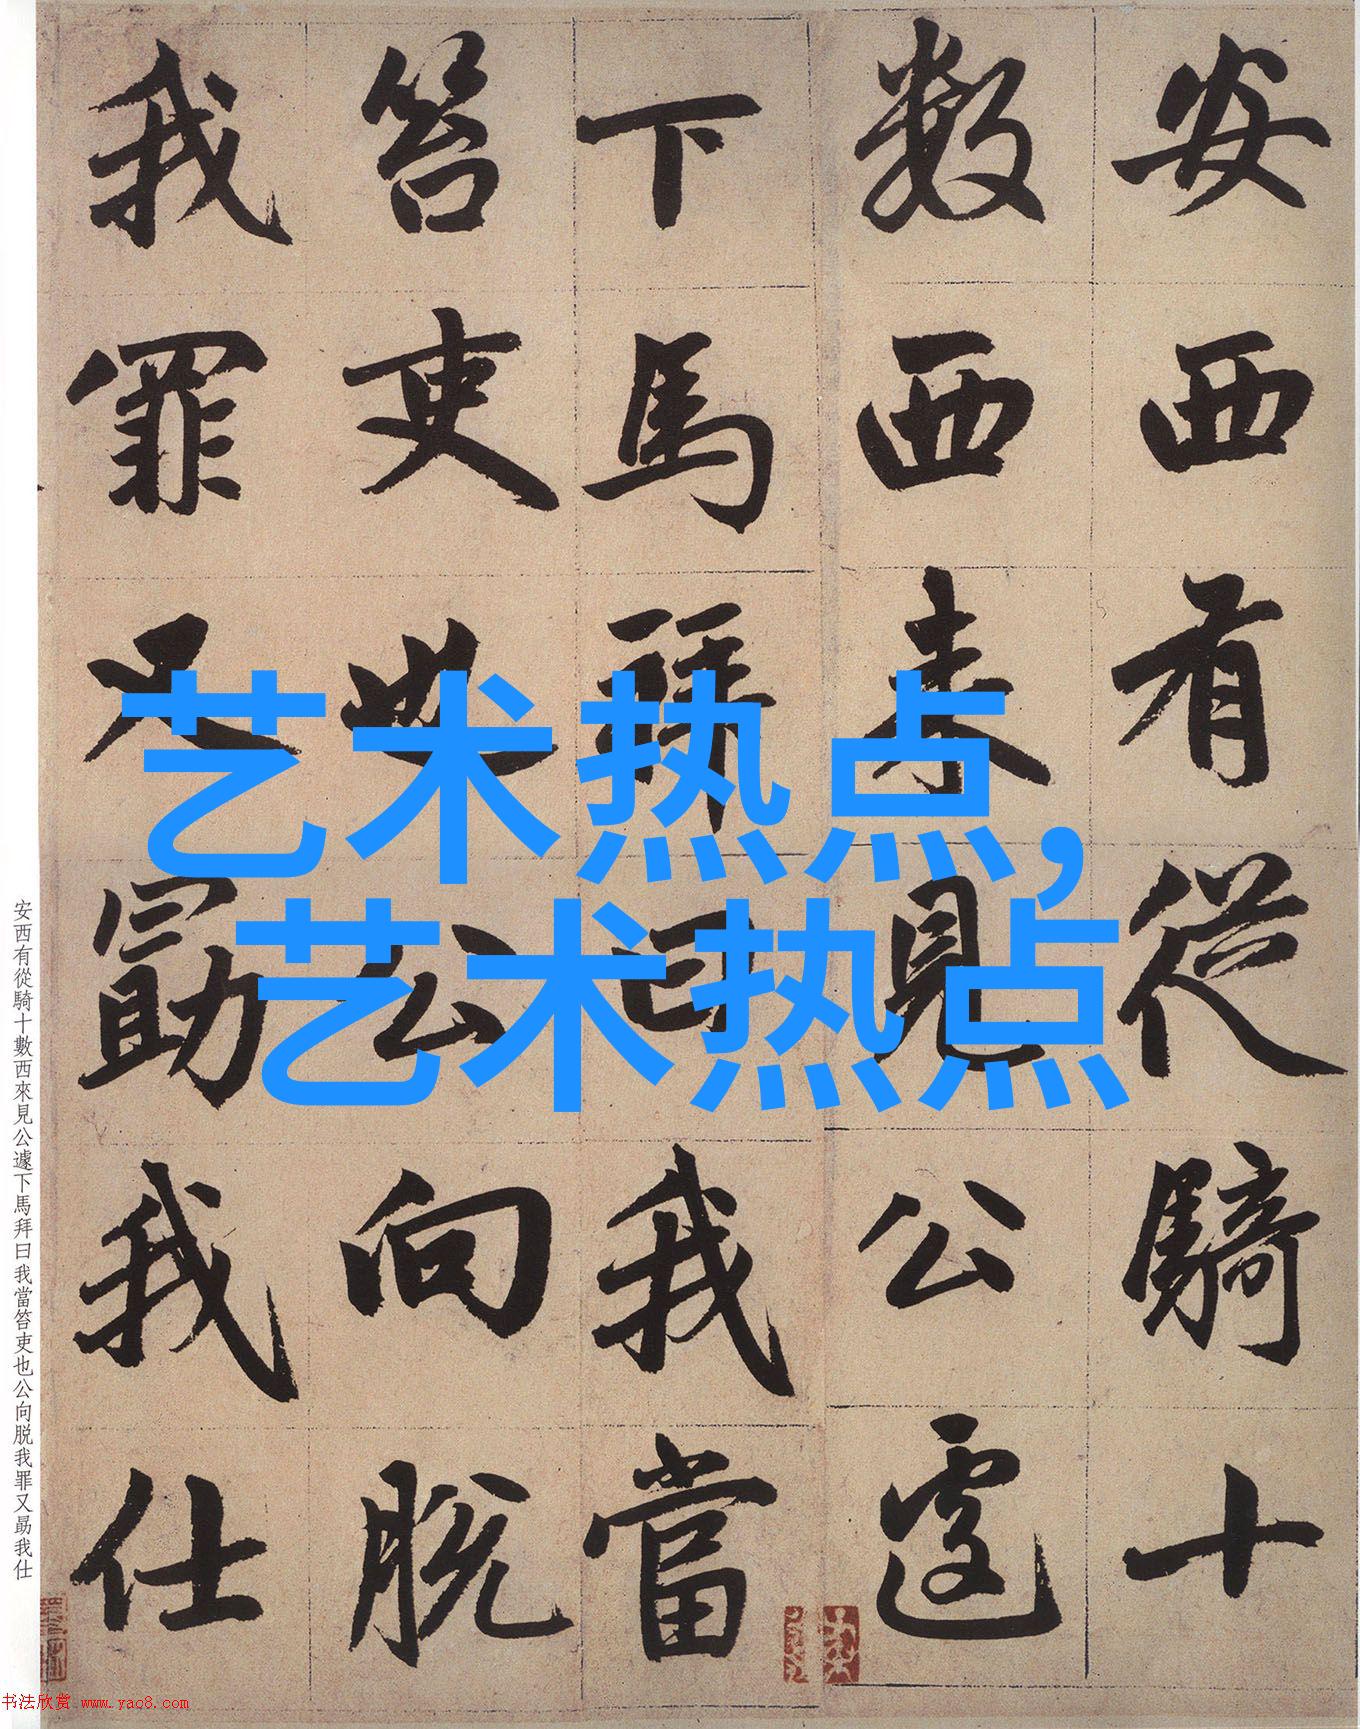 安西有從騎十
數西來見公遽
下馬拜曰我當
笞吏也公向脱
我罪又勗我仕
艺术热点,
艺术热点
安西有從騎十數西來見公遽下馬拜曰我當笞吏也公向脱我罪又勗我仕
书法欣赏 www.yac8.com